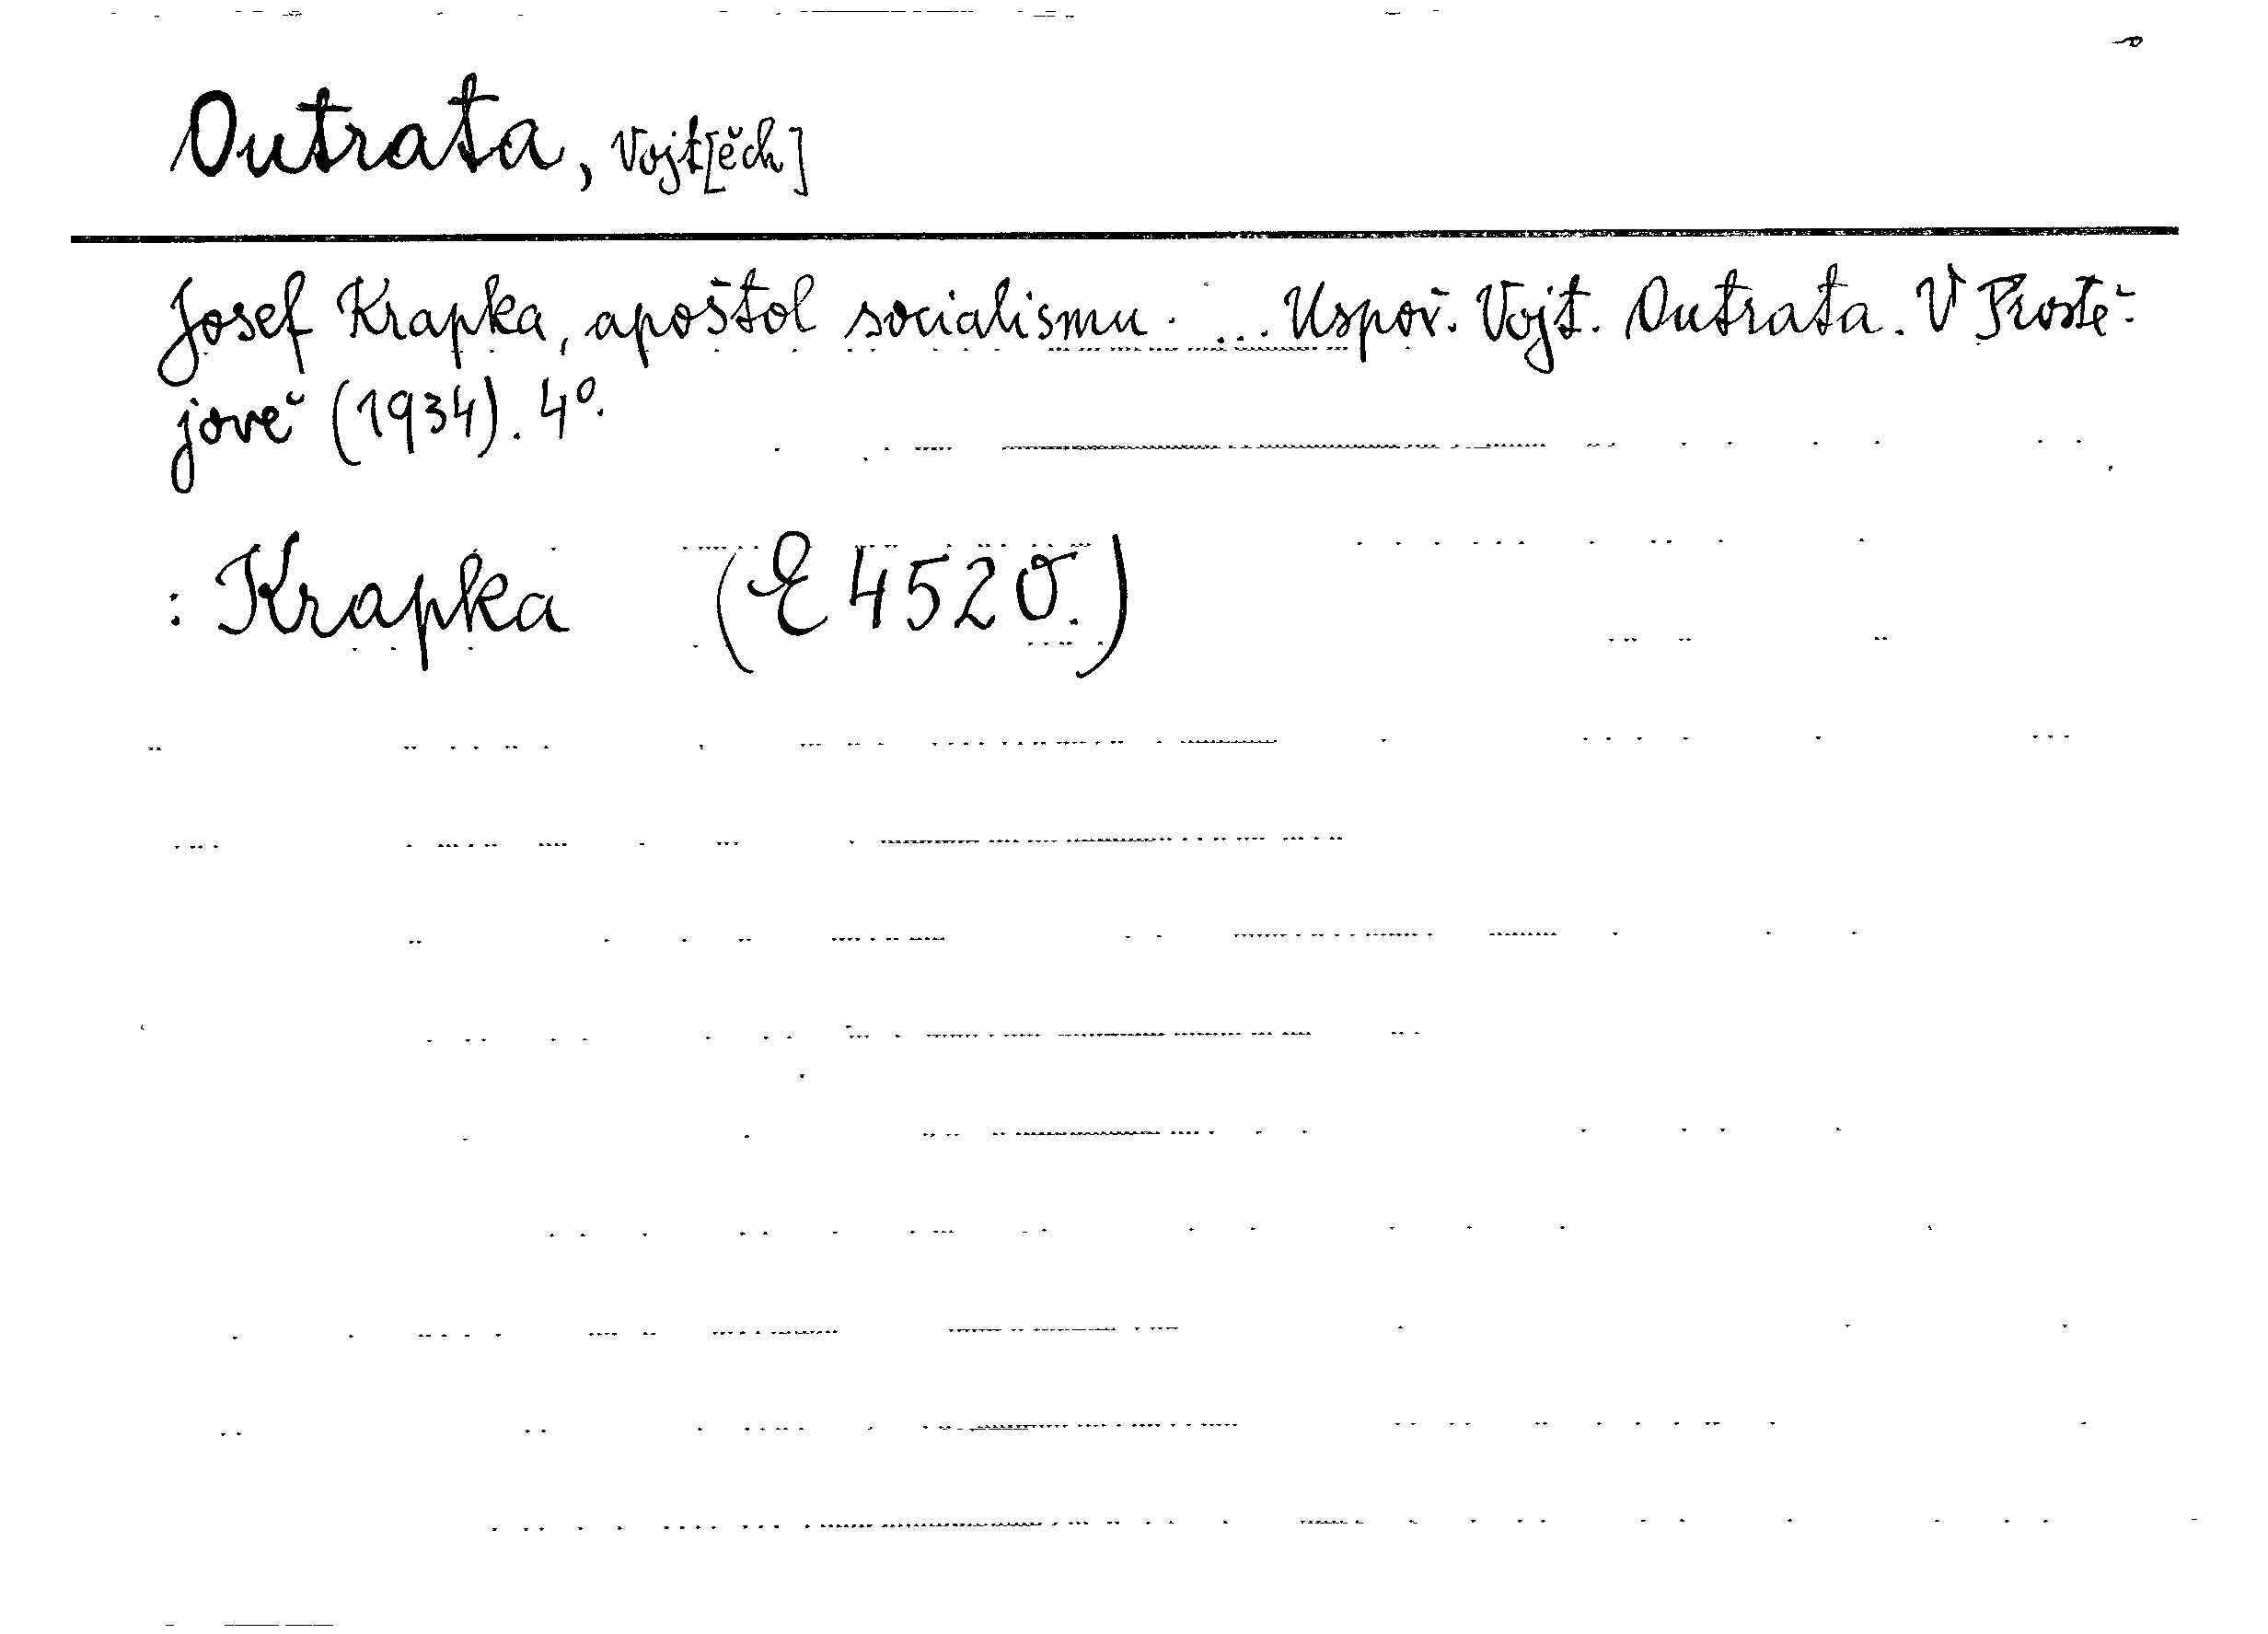 Outrata, Vojt[ěch]
Josef Krapka, apoštol socialismu. ... Uspoř. Vojt. Outrata. V Prostě-
jově (1934). 4°.
: Krapka (E 4520.)